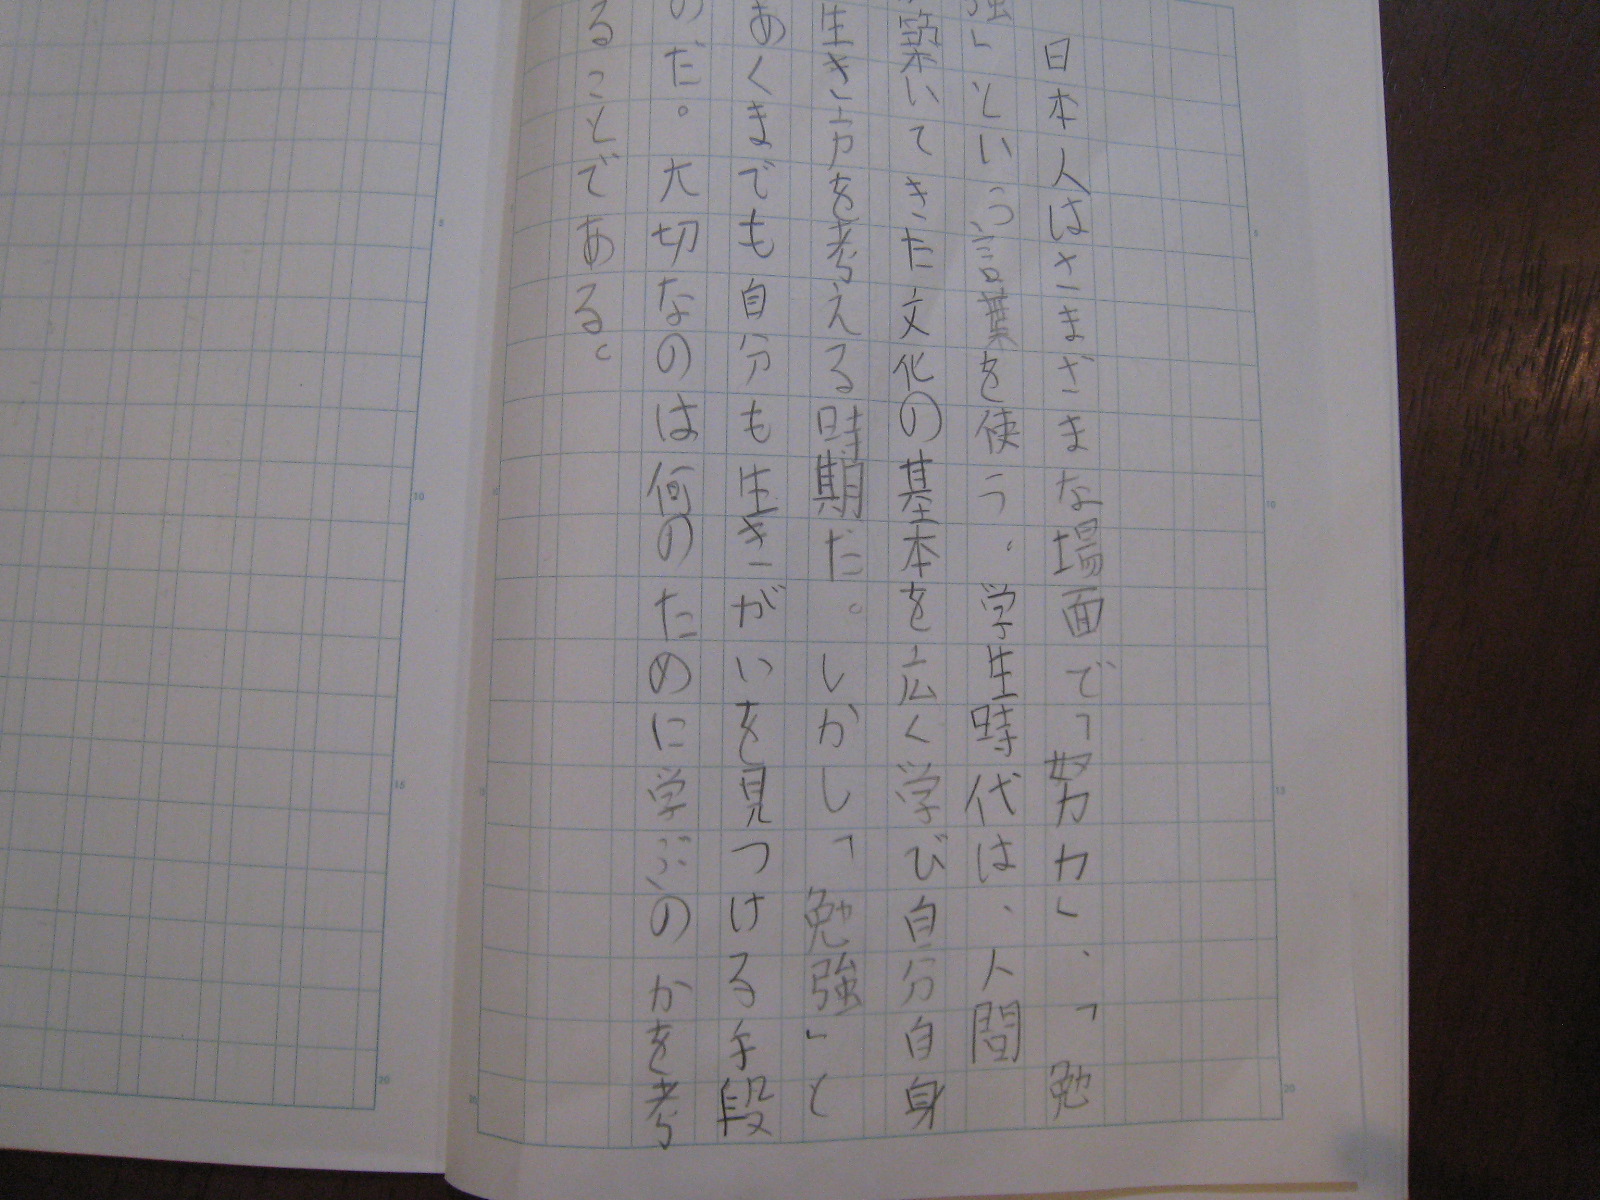 日本人はさまざまな場面で「努力」、「勉
強」という言葉を使う、学生時代は、人間
築いてきた文化の基本を広く学び自分自身
生き方を考える時期だ。しかし「勉強」と
あくまでも自分も生きがいを見つける手段
のだ。大切なのは何のために学ぶのかを考
ることである。